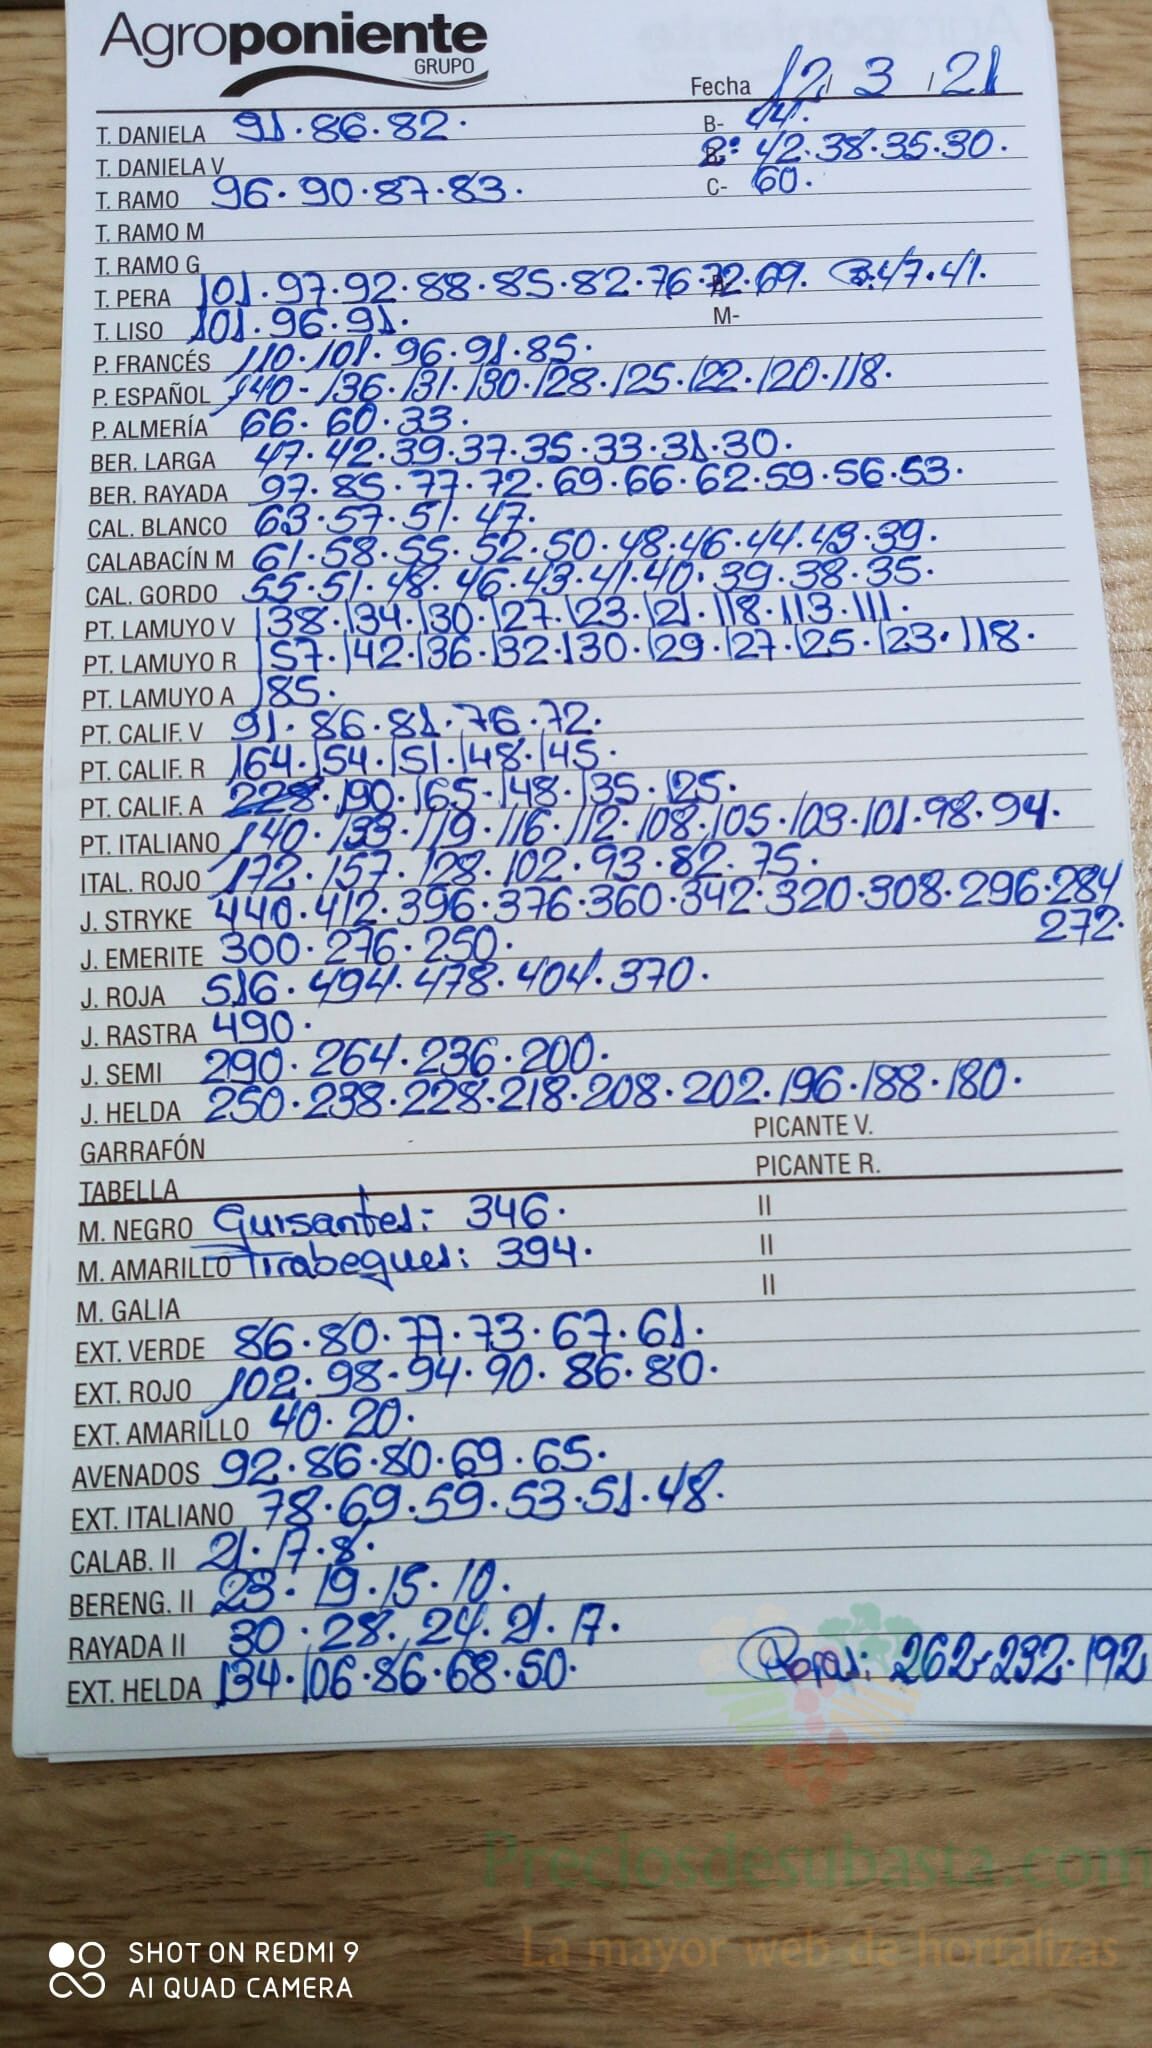 Agroponiente
GRUPO
Fecha 12 / 3 / 21
T. DANIELA 91·86·82· B- 44·
T. DANIELA V B: 42·38·35·30·
T. RAMO 96·90·87·83· C- 60·
T. RAMO M
T. RAMO G
T. PERA 101·97·92·88·85·82·76·72·69· B·47·41·
T. LISO 101·96·91· M-
P. FRANCÉS 110·101·96·91·85·
P. ESPAÑOL 140-136·131·130·128·125·122·120·118·
P. ALMERÍA 66·60·33·
BER. LARGA 47·42·39·37·35·33·31·30·
BER. RAYADA 97·85·77·72·69·66·62·59·56·53·
CAL. BLANCO 63·57·51·47·
CALABACÍN M 61·58·55·52·50·48·46·44·43·39·
CAL. GORDO 55·51·48·46·43·41·40·39·38·35·
PT. LAMUYO V 138·134·130·127·123·121·118·113·111·
PT. LAMUYO R 157·142·136·132·130·129·127·125·123·118·
PT. LAMUYO A 185·
PT. CALIF. V 91·86·81·76·72·
PT. CALIF. R 164·154·151·148·145·
PT. CALIF. A 228·190·165·148·135·125·
PT. ITALIANO 140·133·119·116·112·108·105·103·101·98·94·
ITAL. ROJO 172·157·128·102·93·82·75·
J. STRYKE 440·412·396·376·360·342·320·308·296·284
272·
J. EMERITE 300·276·250·
J. ROJA 516·494·478·404·370·
J. RASTRA 490·
J. SEMI 290·264·236·200·
J. HELDA 250·238·228·218·208·202·196·188·180·
GARRAFÓN PICANTE V.
TABELLA PICANTE R.
M. NEGRO Guisantes: 346· II
M. AMARILLO Tirabeques: 394· II
M. GALIA II
EXT. VERDE 86·80·77·73·67·61·
EXT. ROJO 102·98·94·90·86·80·
EXT. AMARILLO 40·20·
AVENADOS 92·86·80·69·65·
EXT. ITALIANO 78·69·59·53·51·48·
CALAB. II 21·17·8·
BERENG. II 23·19·15·10·
RAYADA II 30·28·24·21·17·
EXT. HELDA 134·106·86·68·50· 262·232·192
Preciosdesubasta.com
La mayor web de hortalizas
SHOT ON REDMI 9
AI QUAD CAMERA